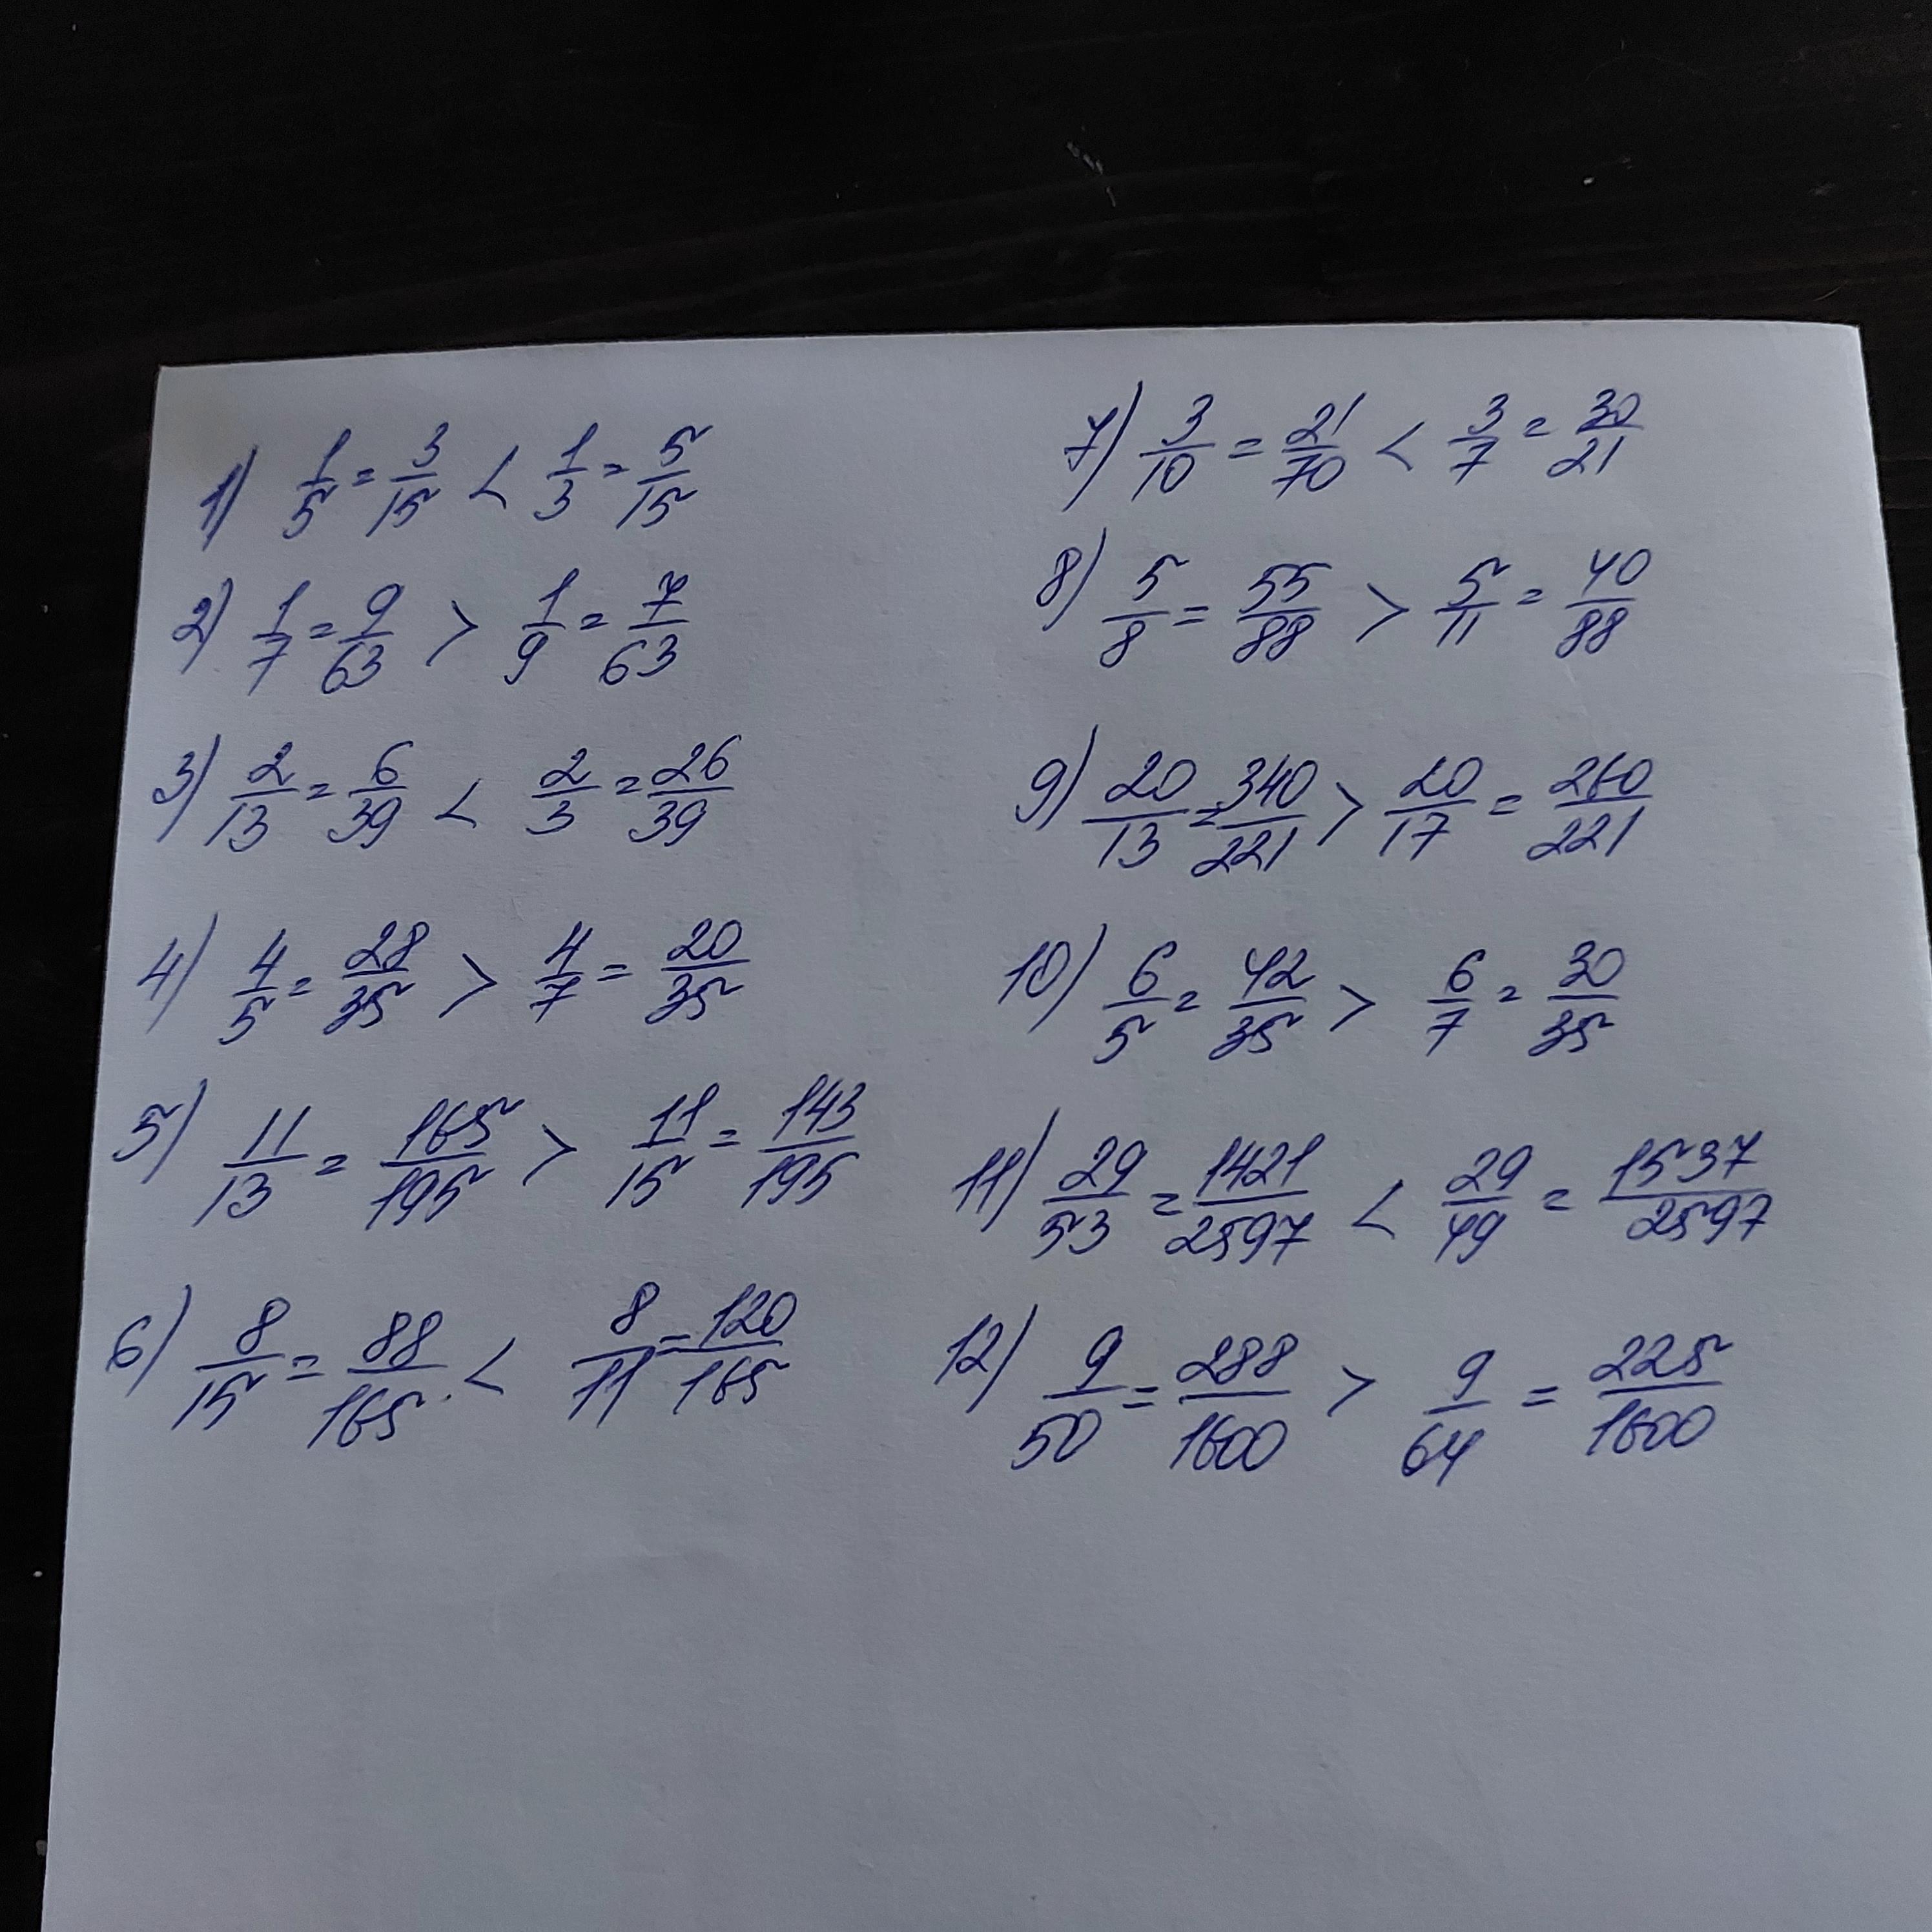 1) 1/5 = 3/15 < 1/3 = 5/15
2) 1/7 = 9/63 > 1/9 = 7/63
3) 2/13 = 6/39 < 2/3 = 26/39
4) 4/5 = 28/35 > 4/7 = 20/35
5) 11/13 = 165/195 > 11/15 = 143/195
6) 8/15 = 88/165 < 8/11 = 120/165
7) 3/10 = 21/70 < 3/7 = 30/21
8) 5/8 = 55/88 > 5/11 = 40/88
9) 20/13 = 340/221 > 20/17 = 260/221
10) 6/5 = 42/35 > 6/7 = 30/35
11) 29/53 = 1421/2597 < 29/49 = 1537/2597
12) 9/50 = 288/1600 > 9/64 = 225/1600